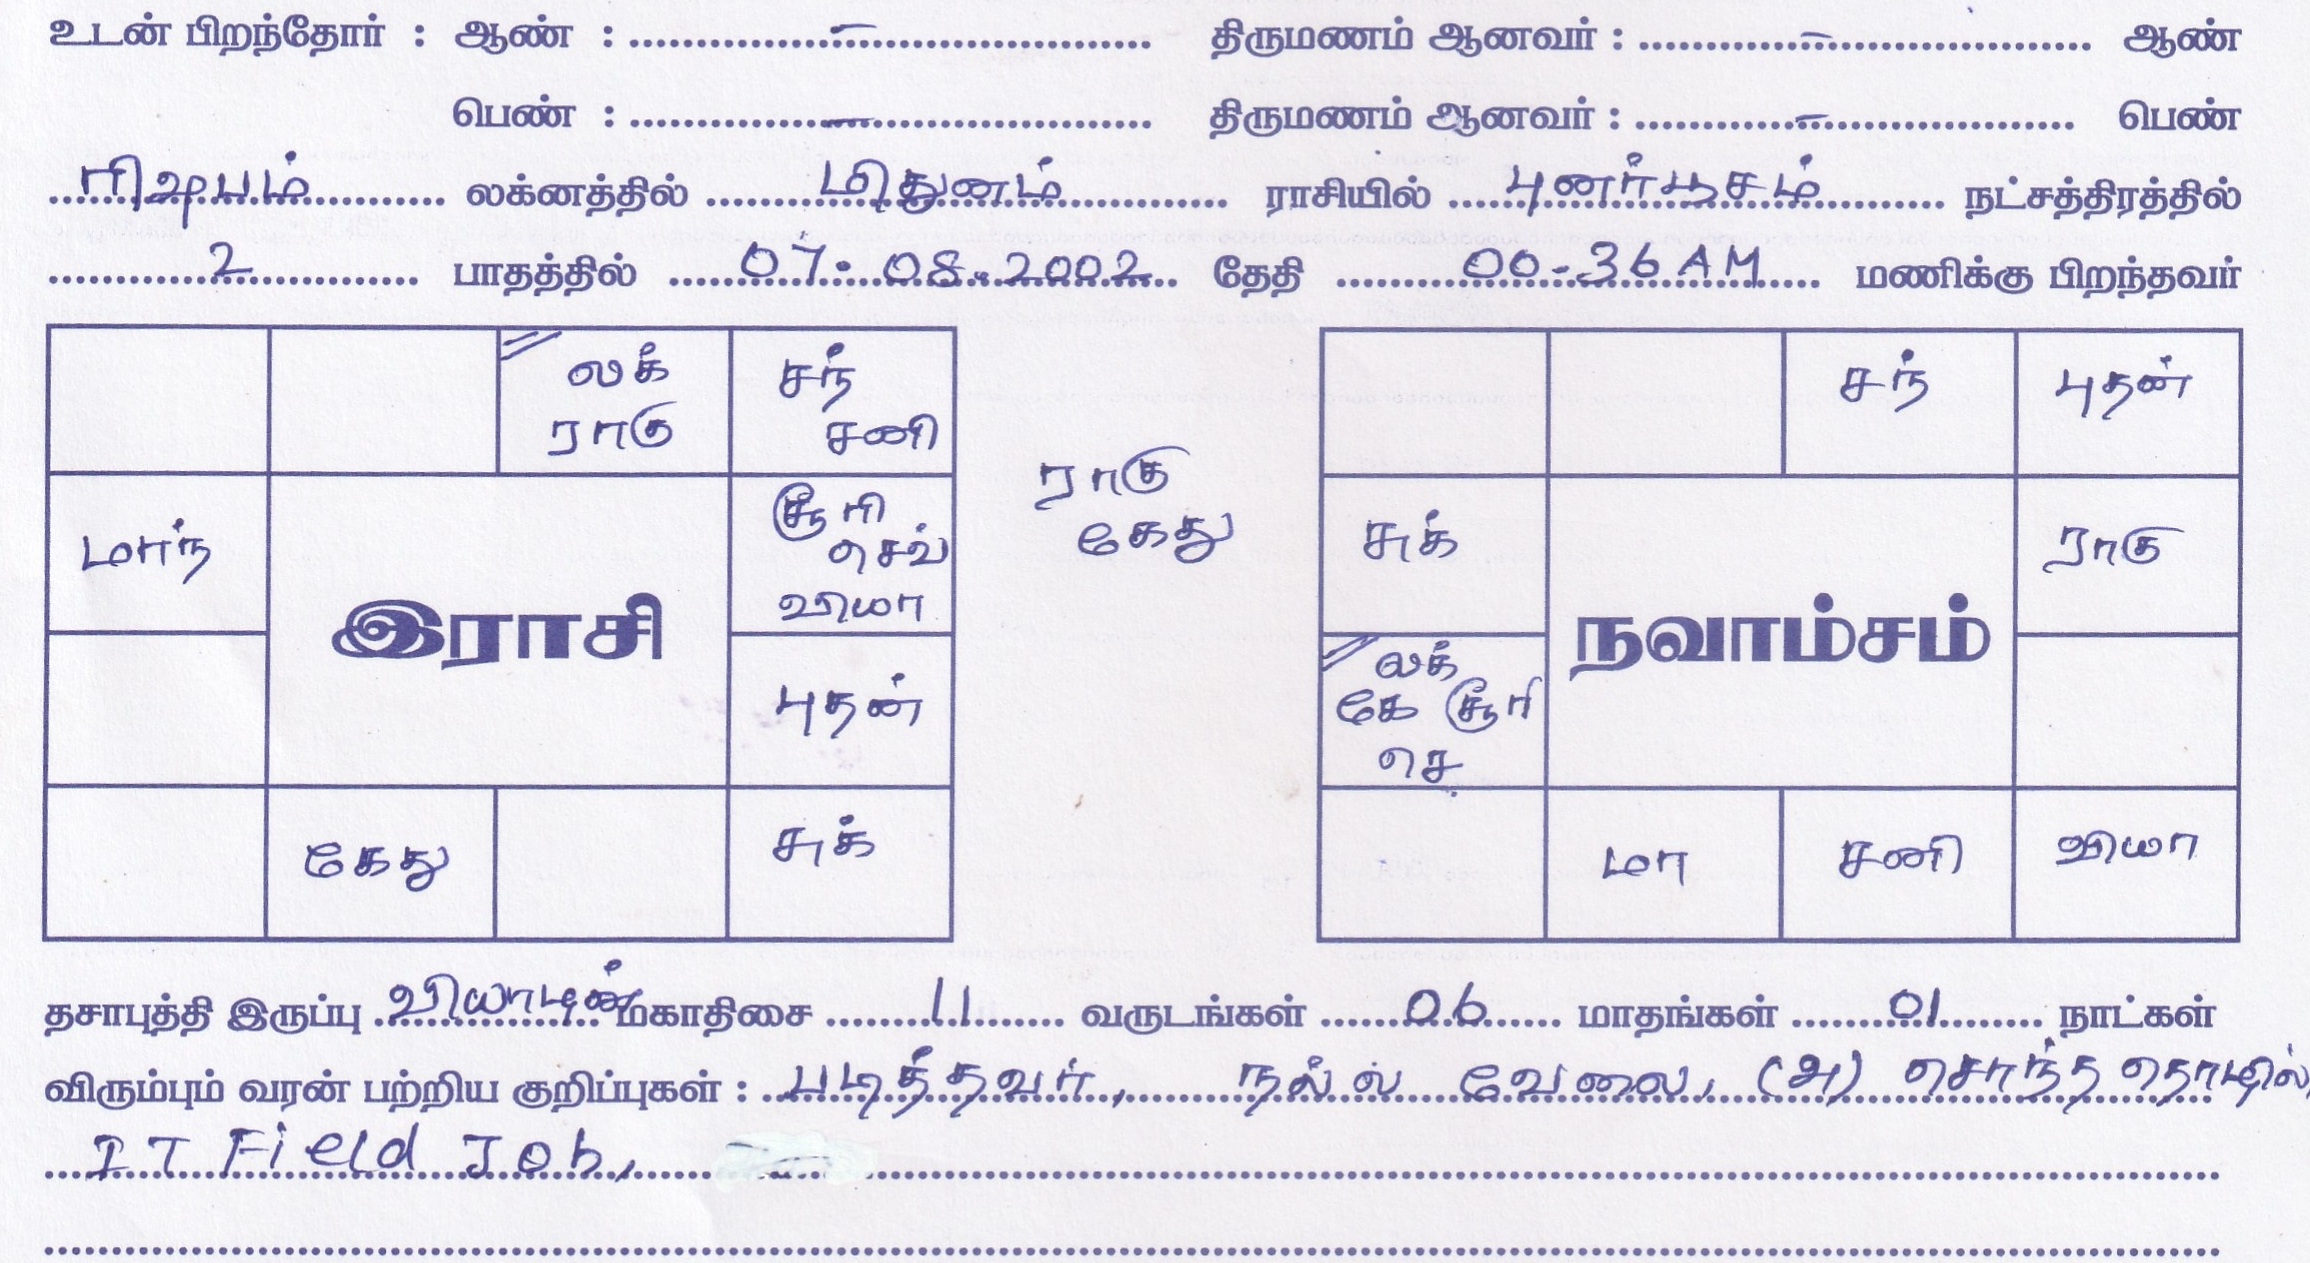 உடன் பிறந்தோர் : ஆண் : ........-........ திருமணம் ஆனவர் : ........-........ ஆண்
பெண் : ........-........ திருமணம் ஆனவர் : ........-........ பெண்
ரிஷபம் லக்னத்தில் மிதுனம் ராசியில் புனர்பூசம் நட்சத்திரத்தில்
2 பாதத்தில் 07.08.2002 தேதி 00-36 AM மணிக்கு பிறந்தவர்
லக் சந் சந் புதன்
ராகு சனி
ராகு
கேது
மாந் சூரி சுக் ராகு
செவ்
வியா
இராசி நவாம்சம்
புதன் லக்
கே சூரி
செ
கேது சுக் மா சனி வியா
தசாபுத்தி இருப்பு வியாழன் மகாதிசை 11 வருடங்கள் 06 மாதங்கள் 01 நாட்கள்
விரும்பும் வரன் பற்றிய குறிப்புகள் : படித்தவர், நல்ல வேலை, (அ) சொந்த தொழில்,
IT Field Job,